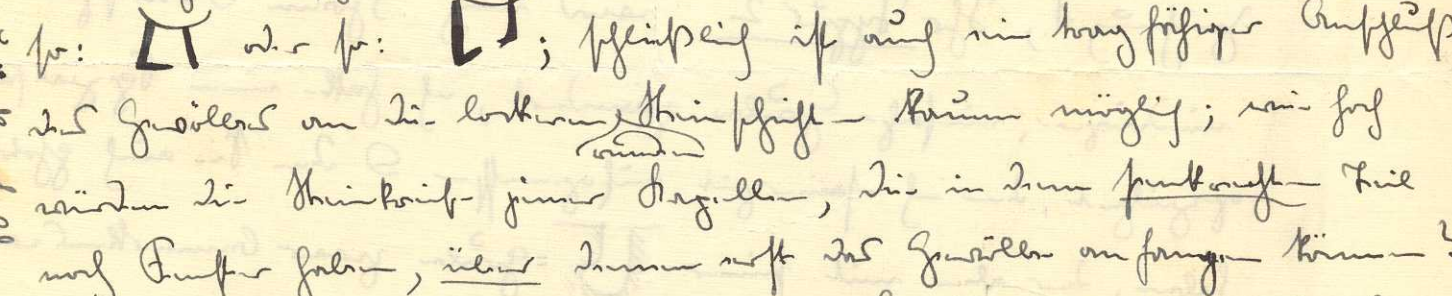 so: oder so: ; schließlich ist auch ein tragfähiger Anschluß
des Gewölbes an die lockeren, runden Steinschichten kaum möglich; wie hoch
würden die Steinkreise jener Kapellen, die in dem senkrechten Teil
noch Fenster haben, über denen erst das Gewölbe anfangen können?